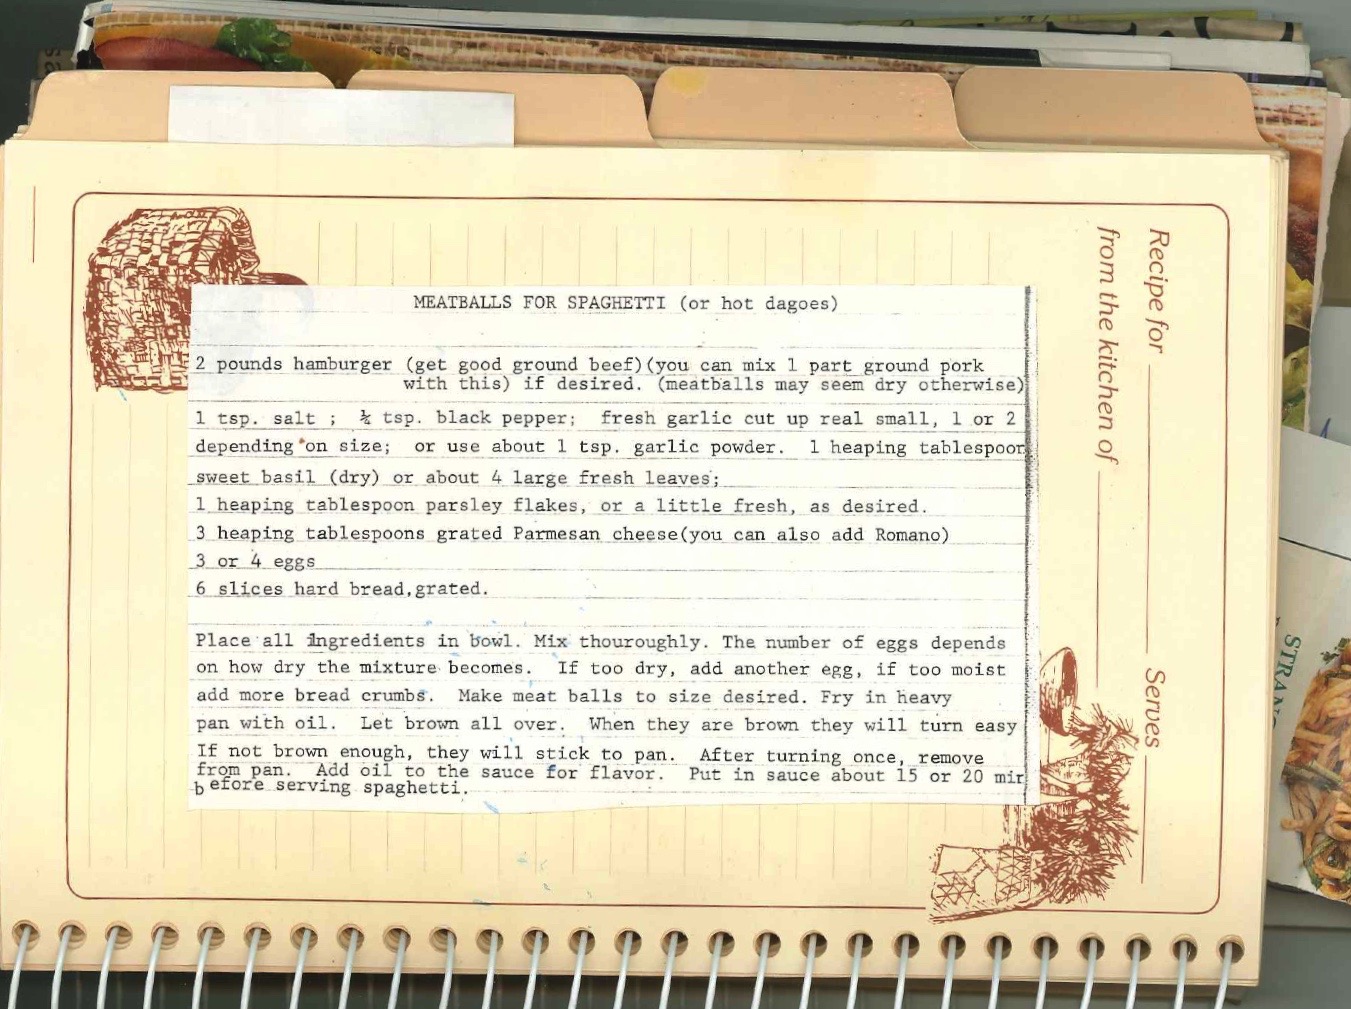 MEATBALLS FOR SPAGHETTI (or hot dagoes)
2 pounds hamburger (get good ground beef)(you can mix 1 part ground pork
with this) if desired. (meatballs may seem dry otherwise)
1 tsp. salt ; ½ tsp. black pepper; fresh garlic cut up real small, 1 or 2
depending on size; or use about 1 tsp. garlic powder. 1 heaping tablespoon
sweet basil (dry) or about 4 large fresh leaves;
1 heaping tablespoon parsley flakes, or a little fresh, as desired.
3 heaping tablespoons grated Parmesan cheese(you can also add Romano)
3 or 4 eggs
6 slices hard bread,grated.
Place all ingredients in bowl. Mix thouroughly. The number of eggs depends
on how dry the mixture becomes. If too dry, add another egg, if too moist
add more bread crumbs. Make meat balls to size desired. Fry in heavy
pan with oil. Let brown all over. When they are brown they will turn easy
If not brown enough, they will stick to pan. After turning once, remove
from pan. Add oil to the sauce for flavor. Put in sauce about 15 or 20 min
before serving spaghetti.
Recipe for
Serves
from the kitchen of